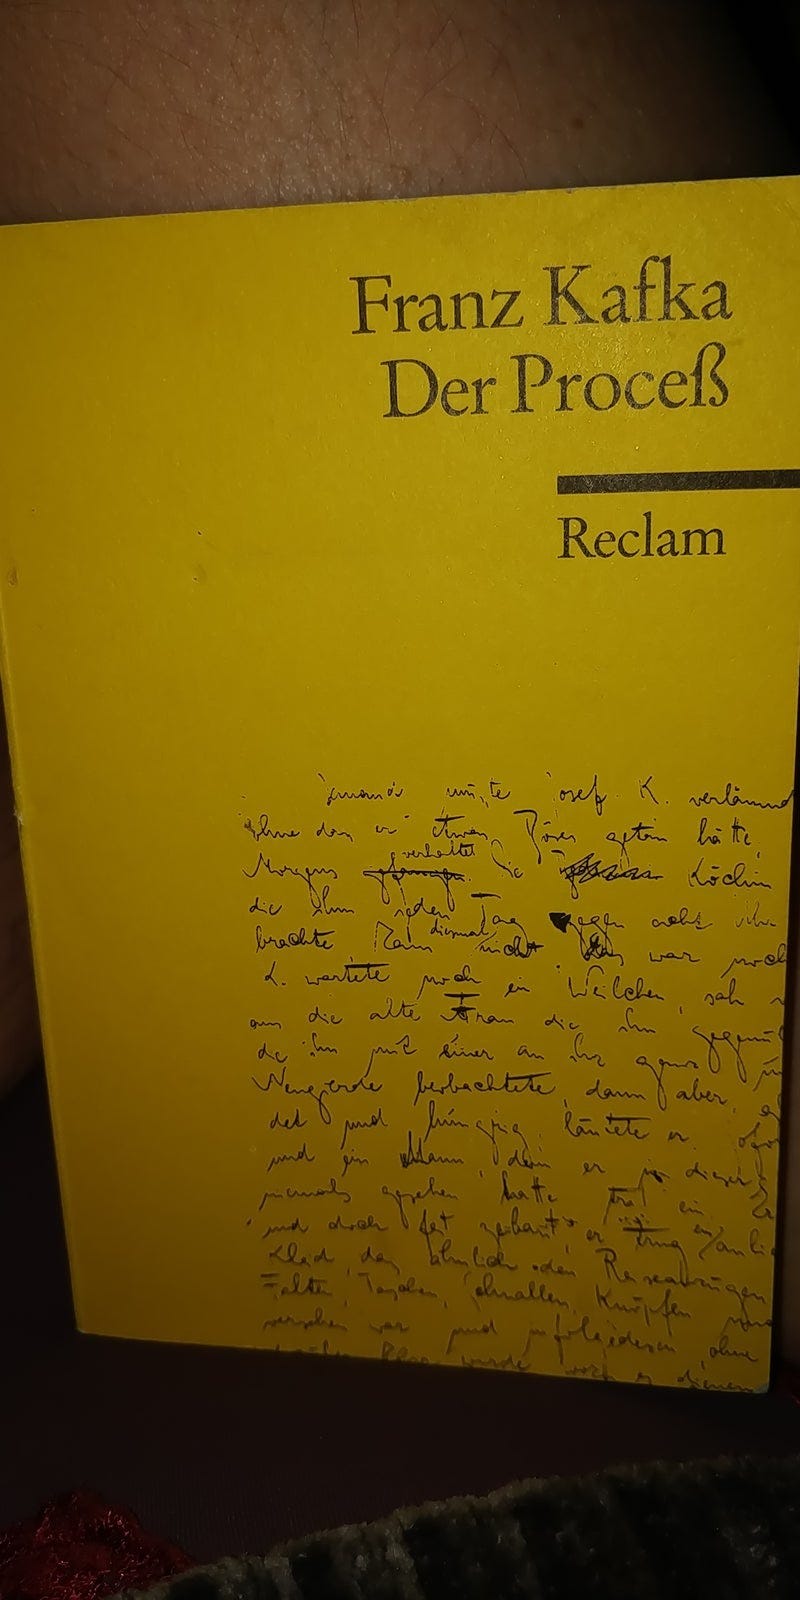 Franz Kafka
Der Proceß
Reclam
Jemand mußte Josef K. verläumd
ohne daß er etwas Böses getan hätte,
verhaftet
Morgens gefangen. Die Köchin
die ihm jeden Tag gegen acht Uhr
brachte kam diesmal nicht. Das war noch
K. wartete noch ein Weilchen, sah
aus die alte Frau die ihm gegenüb
die ihn mit einer an ihr ganz un
Neugierde beobachtete, dann aber,
det und hungrig, läutete er. Sofor
und ein Mann, den er in dieser
niemals gesehen hatte trat ein.
und doch fest gebaut, er trug ein anlie
Kleid, das ähnlich den Reiseanzügen
Falten, Taschen, Schnallen, Knöpfen und
versehen war und infolgedessen, ohne
wurde